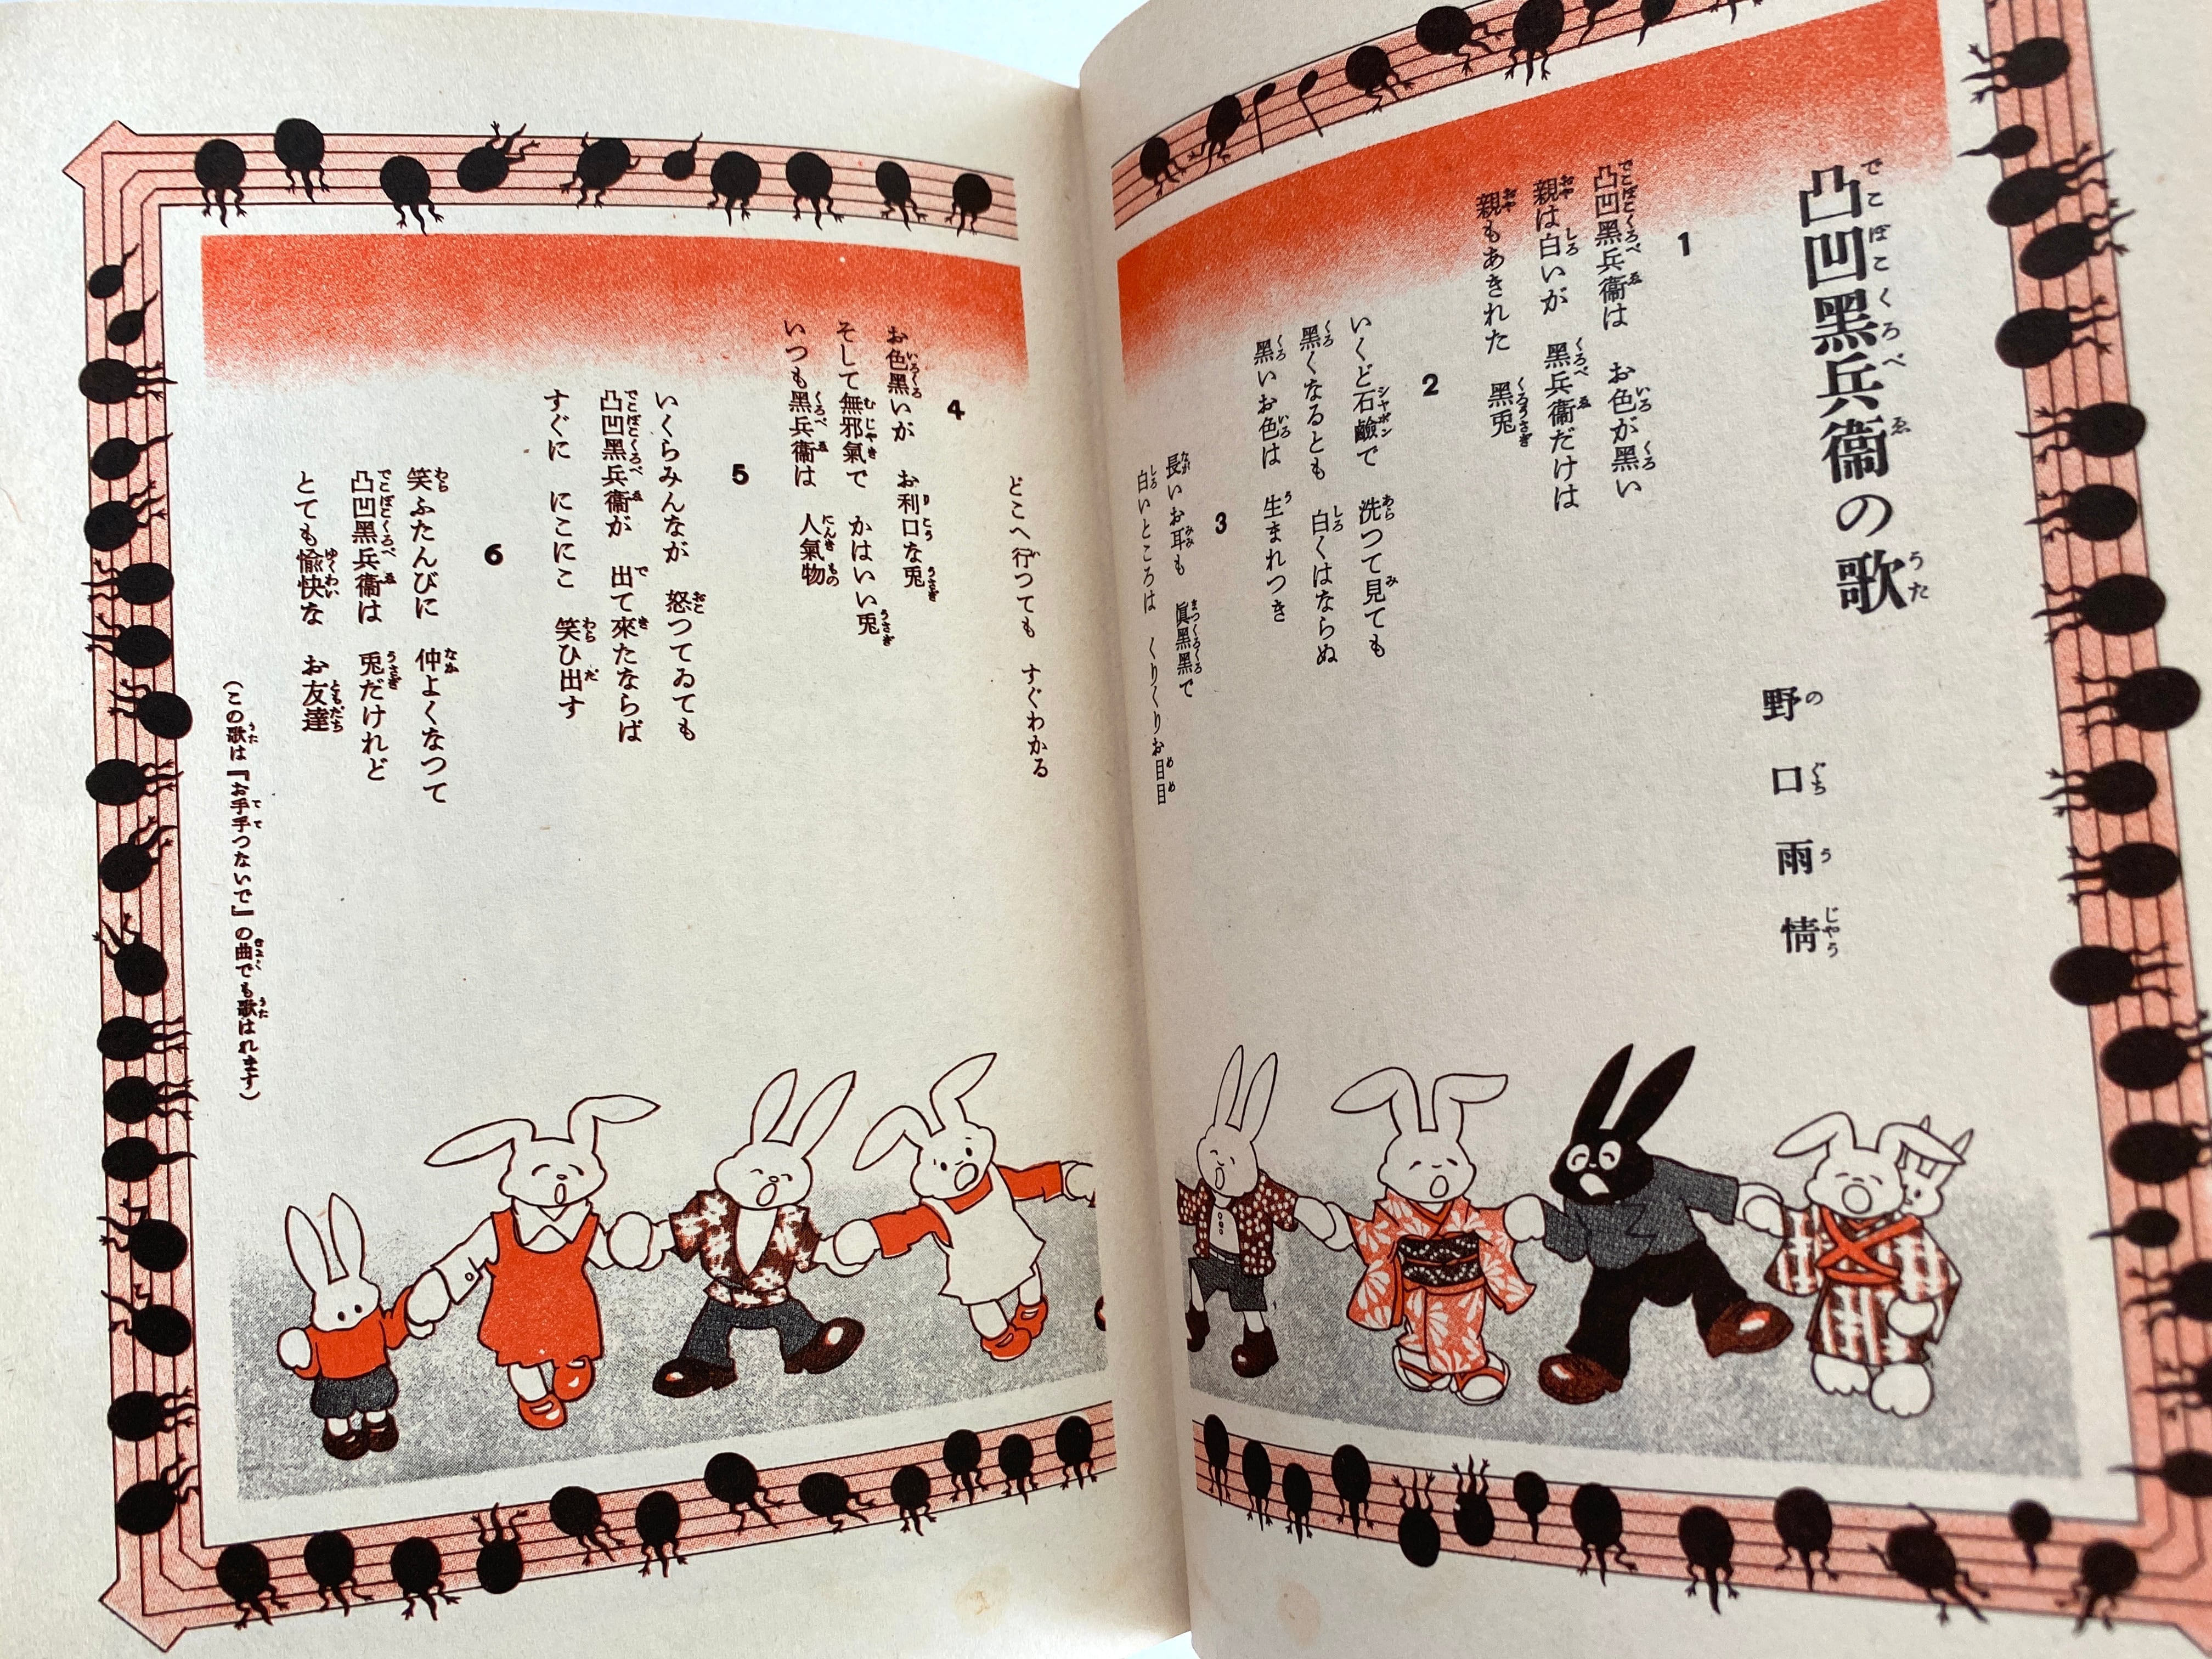 凸凹黑兵衞の歌
野口雨情
1
凸凹黑兵衞は　お色が黑い
親は白いが　黑兵衞だけは
親もあきれた　黑兎
2
いくど石鹼で　洗つて見ても
黑くなるとも　白くはならぬ
黑いお色は　生まれつき
3
長いお耳も　眞黑黑で
白いところは　くりくりお目目
どこへ行つても　すぐわかる
4
お色黑いが　お利口な兎
そして無邪氣で　かはいい兎
いつも黑兵衞は　人氣物
5
いくらみんなが　怒つてゐても
凸凹黑兵衞が　出て來たならば
すぐに　にこにこ　笑ひ出す
6
笑ふたんびに　仲よくなつて
凸凹黑兵衞は　兎だけれど
とても愉快な　お友達
（この歌は『お手手つないで』の曲でも歌はれます）